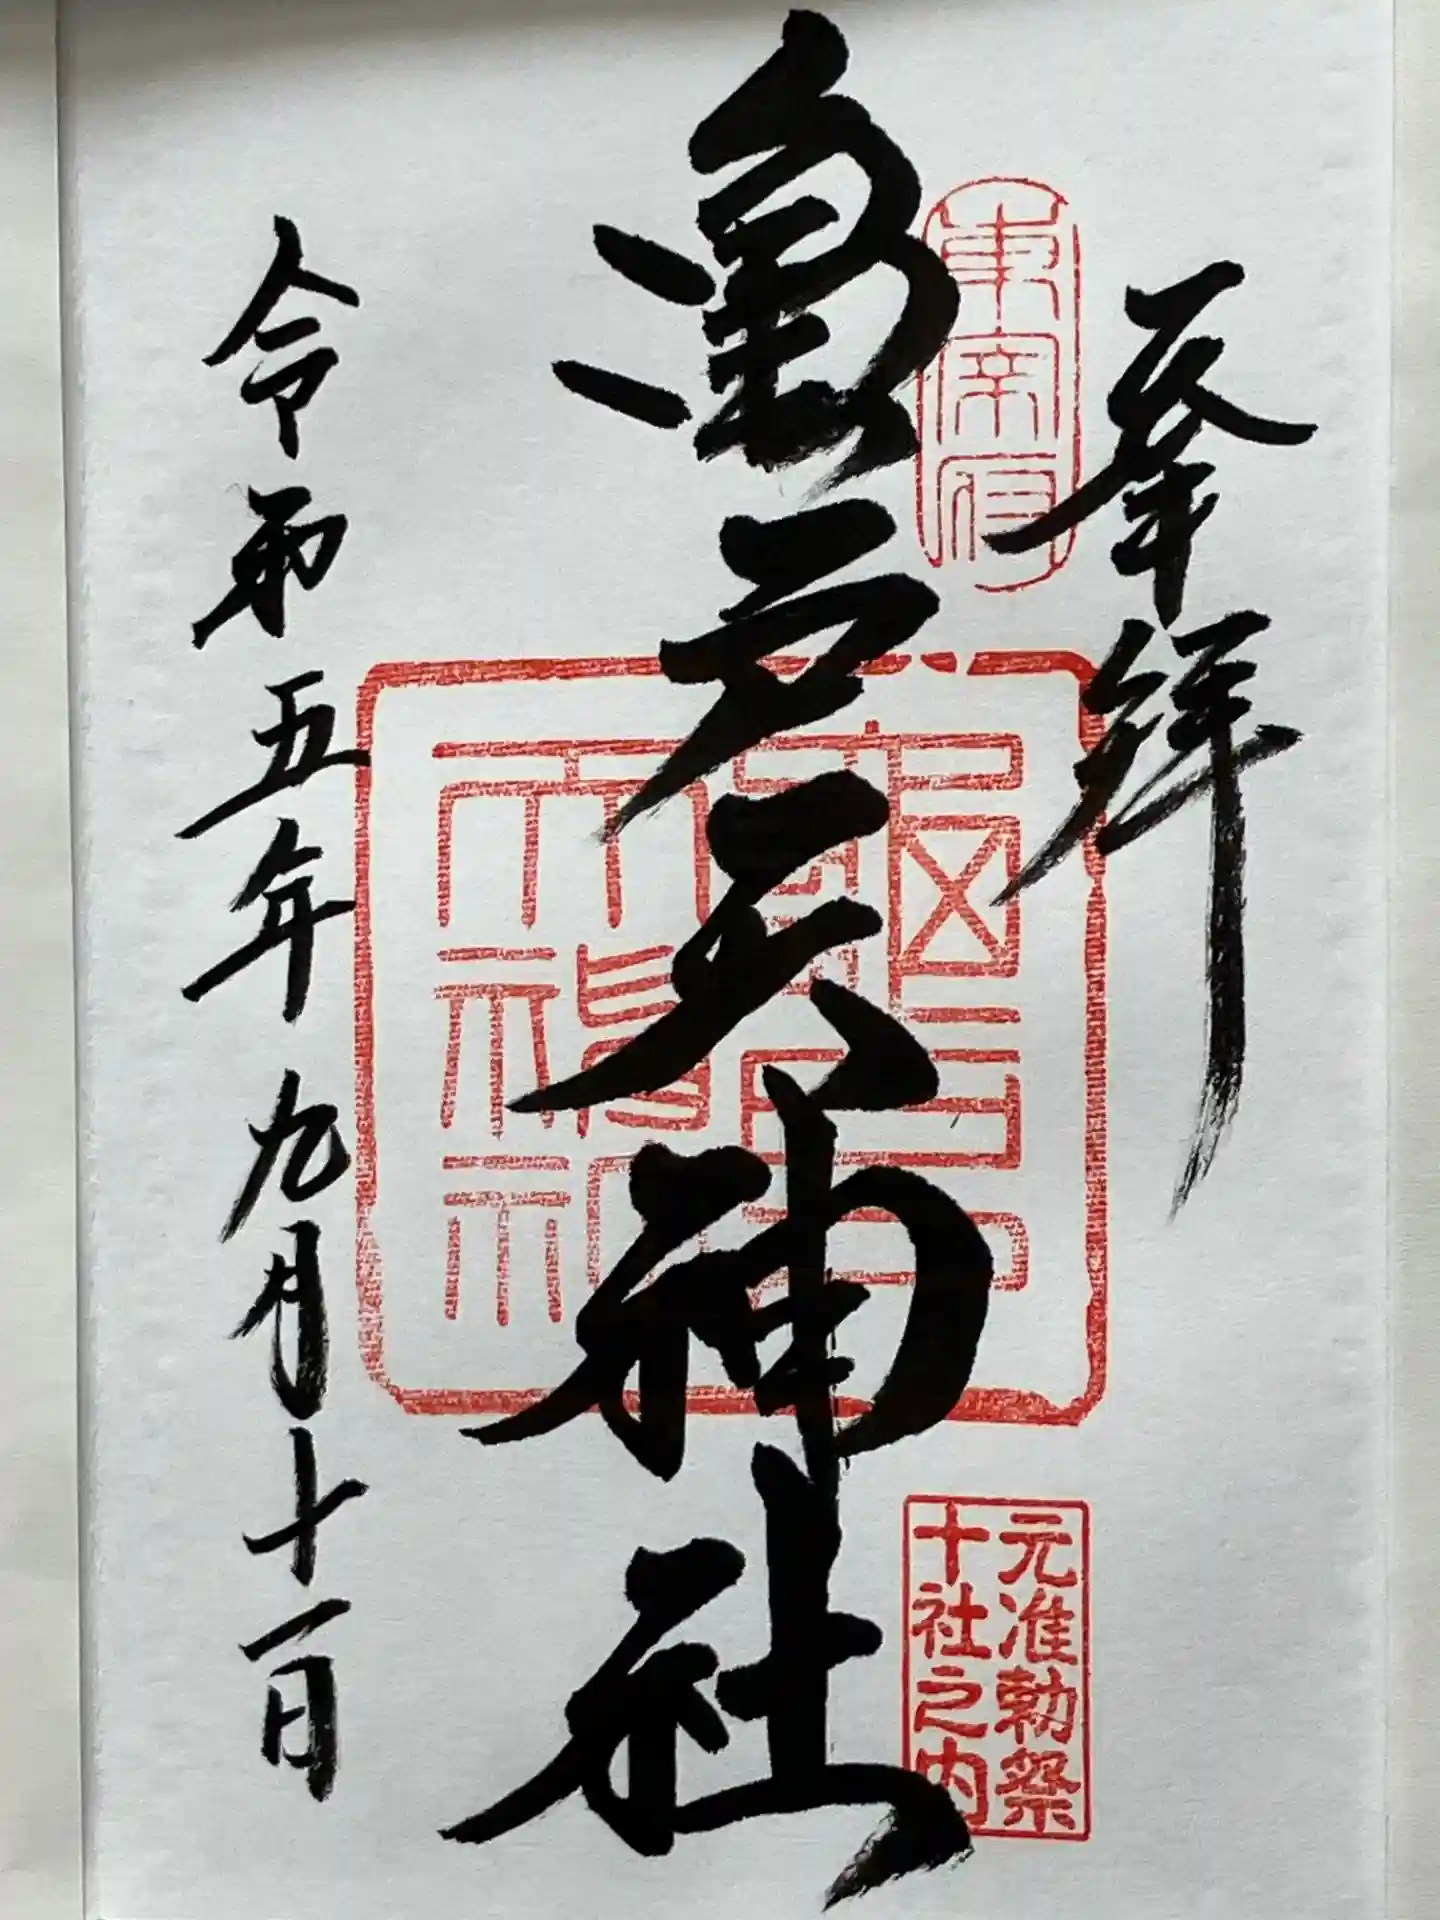 奉拝
東宰府
亀戸天神社
亀戸天神社
元准勅祭
十社之内
令和五年九月十一日